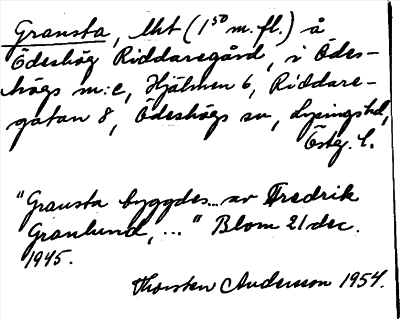 Gransta, lht (1⁵⁰ m. fl.) å
Ödeshög Riddaregård, i Ödes-
högs m:e, Hjälmen 6, Riddare-
gatan 8, Ödeshögs sn, Lysings hd,
Östg. l.
"Gransta byggdes... av Fredrik
Granlund, ..." Blom 21 dec.
1945.
Thorsten Andersson 1954.